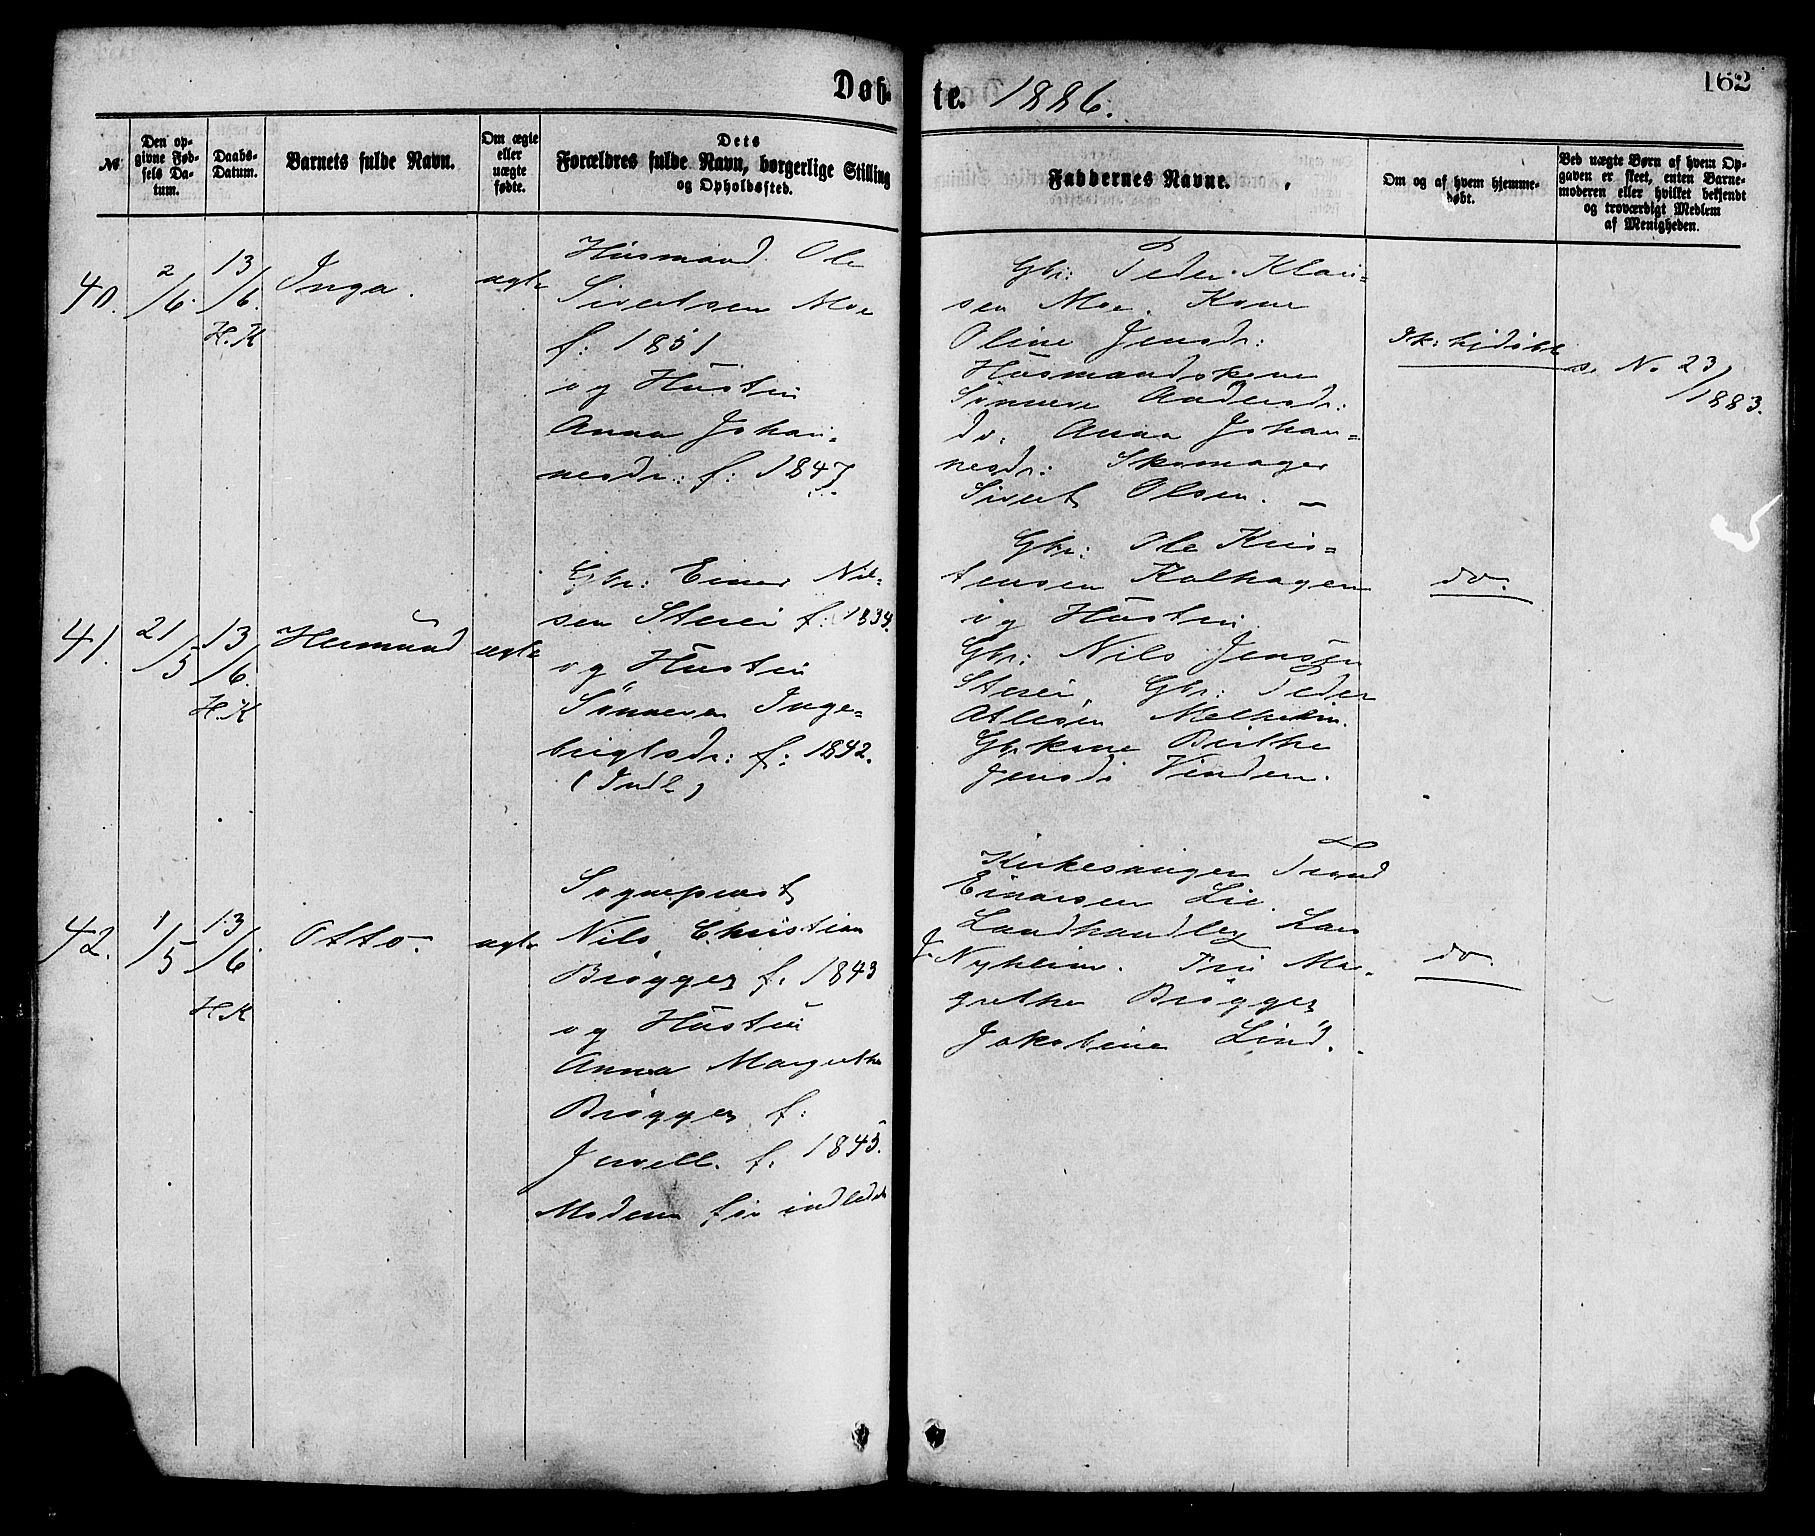 Døb-
te. 1886.
162
№
Den op-
givne Fød-
sels Da-
tum.
Daabs-
Datum.
Barnets fulde Navn.
Om ægte
eller
uægte
fødte.
Dets
Forældres fulde Navn, borgerlige Stilling
og Opholdssted.
Faddernes Navne.
Om og af hvem hjemme-
døbt.
Ved uægte Børn af hvem Op-
gaven er skeet, enten Barne-
moderen eller hvilket bekjendt
og troværdigt Medlem
af Menigheden.
40.
2/6.
13/6.
H.K
Inga.
ægte
Husmand Ole
Sivertsen Moe
f: 1851
og Hustru
Anna Johan-
nesdr: f: 1847.
Gbr: Peder Klau-
sen Moe. Kone
Oline Jensdr:
Husmandskone
Synneve Andersdr:
do: Anna Johan-
nesdr: Skomager
Sivert Olsen. —
Ik: hjdøbt
s. No 23/1883.
41.
21/5
13/6.
H.K
Hermund
ægte
Gbr: Einar Nil-
sen Steier f: 1834.
og Hustru
Synneva Inge-
brigtsdr: f: 1842.
(Indl)
Gbr: Ole Kris-
tensen Kalhagen
og Hustru
Gbr: Nils Jensen
Steier, Gbr: Peder
Atlesen Melheim.
Gbrkone Birthe
Jensdr Vinden.
do.
42.
1/5
13/6.
H.K
Otto.
ægte
Sogneprest
Nils Christian
Brøgger f. 1843
og Hustru
Anna Margrethe
Brøgger f:
Juvell. f. 1845.
Moderen før indledet
Kirkesanger Trond
Einarsen Lie.
Landhandler Lars
J. Nyheim. Fru Mar-
grethe Brøgger
Jakobine Lind.
do.